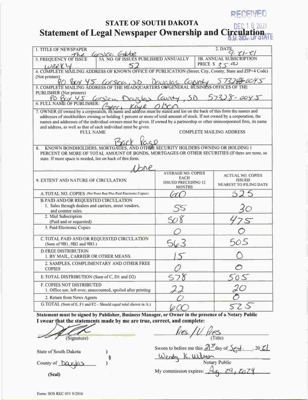 RECEIVED
DEC 18 2021
SD SEC OF STATE
STATE OF SOUTH DAKOTA
Statement of Legal Newspaper Ownership and Circulation
1. TITLE OF NEWSPAPER
The Corsica Globe
2. DATE
3. FREQUENCY OF ISSUE
Weekly
3A. NO. OF ISSUES PUBLISHED ANNUALLY
52
3B. ANNUAL SUBSCRIPTION PRICE $
4. COMPLETE MAILING ADDRESS OF KNOWN OFFICE OF PUBLICATION (Street, City, County, State and ZIP+4 Code) (Not printers)
PO Box 45 Corsica, SD Douglas County 57328-0045
5. COMPLETE MAILING ADDRESS OF THE HEADQUARTERS OR GENERAL BUSINESS OFFICES OF THE PUBLISHER (Not printer)
PO Box 45 Corsica, Douglas County, SD 57328-0045
6. FULL NAME OF PUBLISHER:
7. OWNER (If owned by a corporation, its name and address must be stated and also on the back of this form the names and addresses of stockholders owning or holding 1 percent or more of total amount of stock. If not owned by a corporation, the names and addresses of the individual owners must be given. If owned by a partnership or other unincorporated firm, its name and address, as well as that of each individual must be given.
FULL NAME
COMPLETE MAILING ADDRESS
Back Page
8. KNOWN BONDHOLDERS, MORTGAGES, AND OTHER SECURITY HOLDERS OWNING OR HOLDING 1 PERCENT OR MORE OF TOTAL AMOUNT OF BONDS, MORTGAGES OR OTHER SECURITIES (If there are none, so state. If more space is needed, list on back of this form.
None
9. EXTENT AND NATURE OF CIRCULATION
AVERAGE NO. COPIES EACH ISSUED PRECEDING 12 MONTHS
ACTUAL NO. COPIES ISSUED NEAREST TO FILING DATE
A. TOTAL NO. COPIES
600
525
B. PAID AND/OR REQUESTED CIRCULATION
1. Sales through dealers and carriers, street vendors, and counter sales.
55
30
2. Mail Subscription (Paid and/or requested)
508
475
3. Paid Electronic Copies
0
0
C. TOTAL PAID AND/OR REQUESTED CIRCULATION (Sum of 9B1, 9B2 and 9B3)
563
505
D. FREE DISTRIBUTION
1. BY MAIL, CARRIER OR OTHER MEANS
15
0
2. SAMPLES, COMPLIMENTARY AND OTHER FREE COPIES
0
0
E. TOTAL DISTRIBUTION (Sum of C, D1 and D2)
578
505
F. COPIES NOT DISTRIBUTED
1. Office use, left over, unaccounted, spoiled after printing
22
20
2. Return from News Agents
0
0
G. TOTAL (Sum of E, F1 and F2 - Should equal total shown in A.)
600
525
Statement must be signed by Publisher, Business Manager, or Owner in the presence of a Notary Public
I swear that the statements made by me are true, correct, and complete:
(Signature)
(Title)
State of South Dakota )
County of Douglas )
(Seal)
Sworn to before me this 21st day of Sept. 2021
Notary Public
My commission expires:
Form: SOS REC 051 9/2016